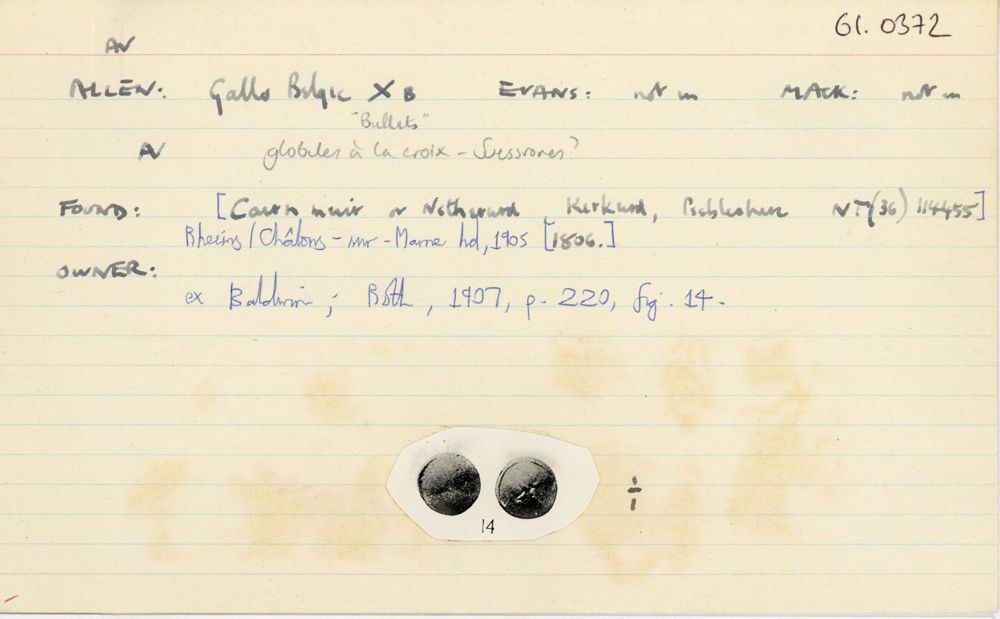 61.0372
AV
ALLEN: Gallo Belgic X B EVANS: not in MACK: not in
"Bullets"
AV globules à la croix - Suessiones?
FOUND: [Cairnmuir or Netherurd, Kirkurd, Peeblesshire NT(36) 114455]
Rheims/Châlons-sur-Marne hd, 1905 [1806.]
OWNER:
ex Baldwin; Roth, 1907, p. 220, fig. 14.
14
1/1